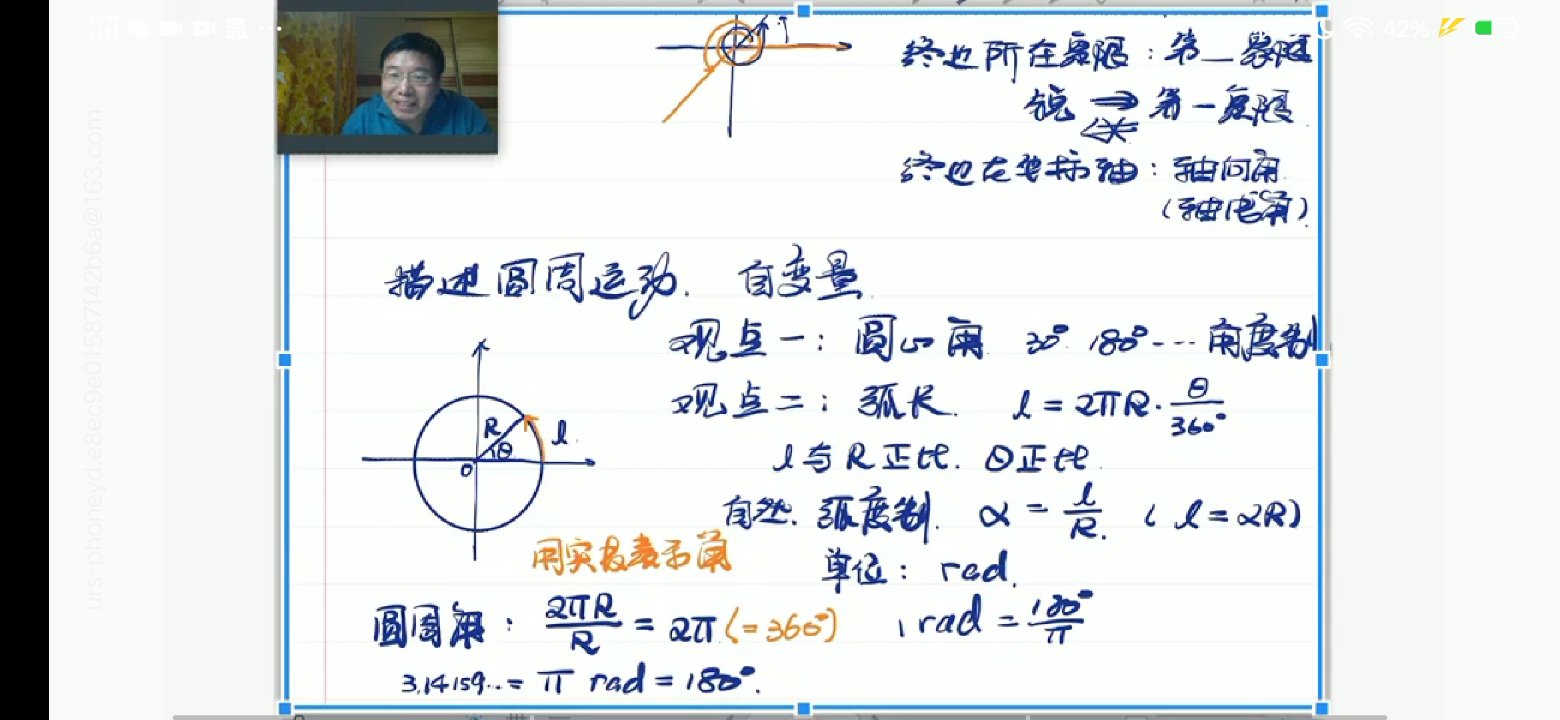 42%
urs-phoneyd.e8ec9e01587f42b6a@163.com
终边所在象限:第一象限
锐 ⇒ 第一象限
终边在坐标轴:轴向角
描述圆周运动. 自变量
观点一:圆心角 30° 180°… 角度制
观点二:弧长. l = 2πR·θ/360°
l与R正比. θ正比.
自然. 弧度制. α = l/R. (l = αR)
单位: rad.
R
θ
l
O
用实数表示角
圆周角: 2πR/R = 2π (=360°) 1 rad = 180°/π
3.14159… = π rad = 180°.